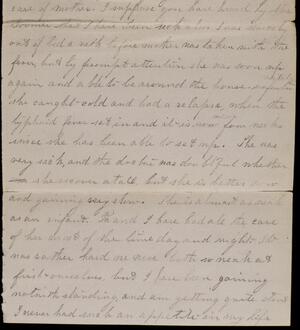 care of mother. I suppose you have heard by the
that I have been sick also. I was
out of bed a week before mother was taken with the
but by prompt attention she was soon up
again and able to be around the house,
she caught cold and had a relapse, when the
typhoid fever set in and it is now four weeks
since she has been able to set up. She was
very sick, and the doctor was doubtful whether
she recover at all, but she is better now
and gaining very slow. She is almost as weak
as an infant. and I have had all the care
of her most of the time day and night. It
was rather hard we were both so weak at
first ourselves, but I have been gaining
notwithstanding, and am getting quite stout
I never had such an appetite in my life